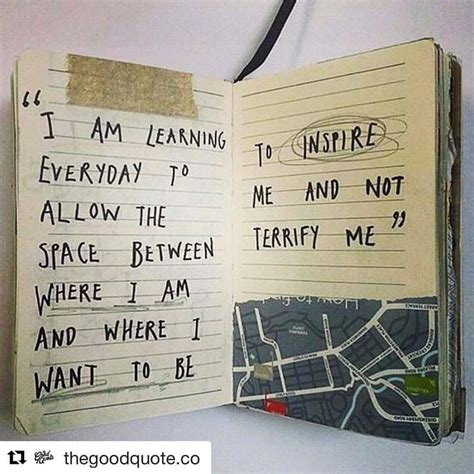 “I AM LEARNING
EVERYDAY TO
ALLOW THE
SPACE BETWEEN
WHERE I AM
AND WHERE I
WANT TO BE
TO INSPIRE
ME AND NOT
TERRIFY ME”
How to fin
thegoodquote.co